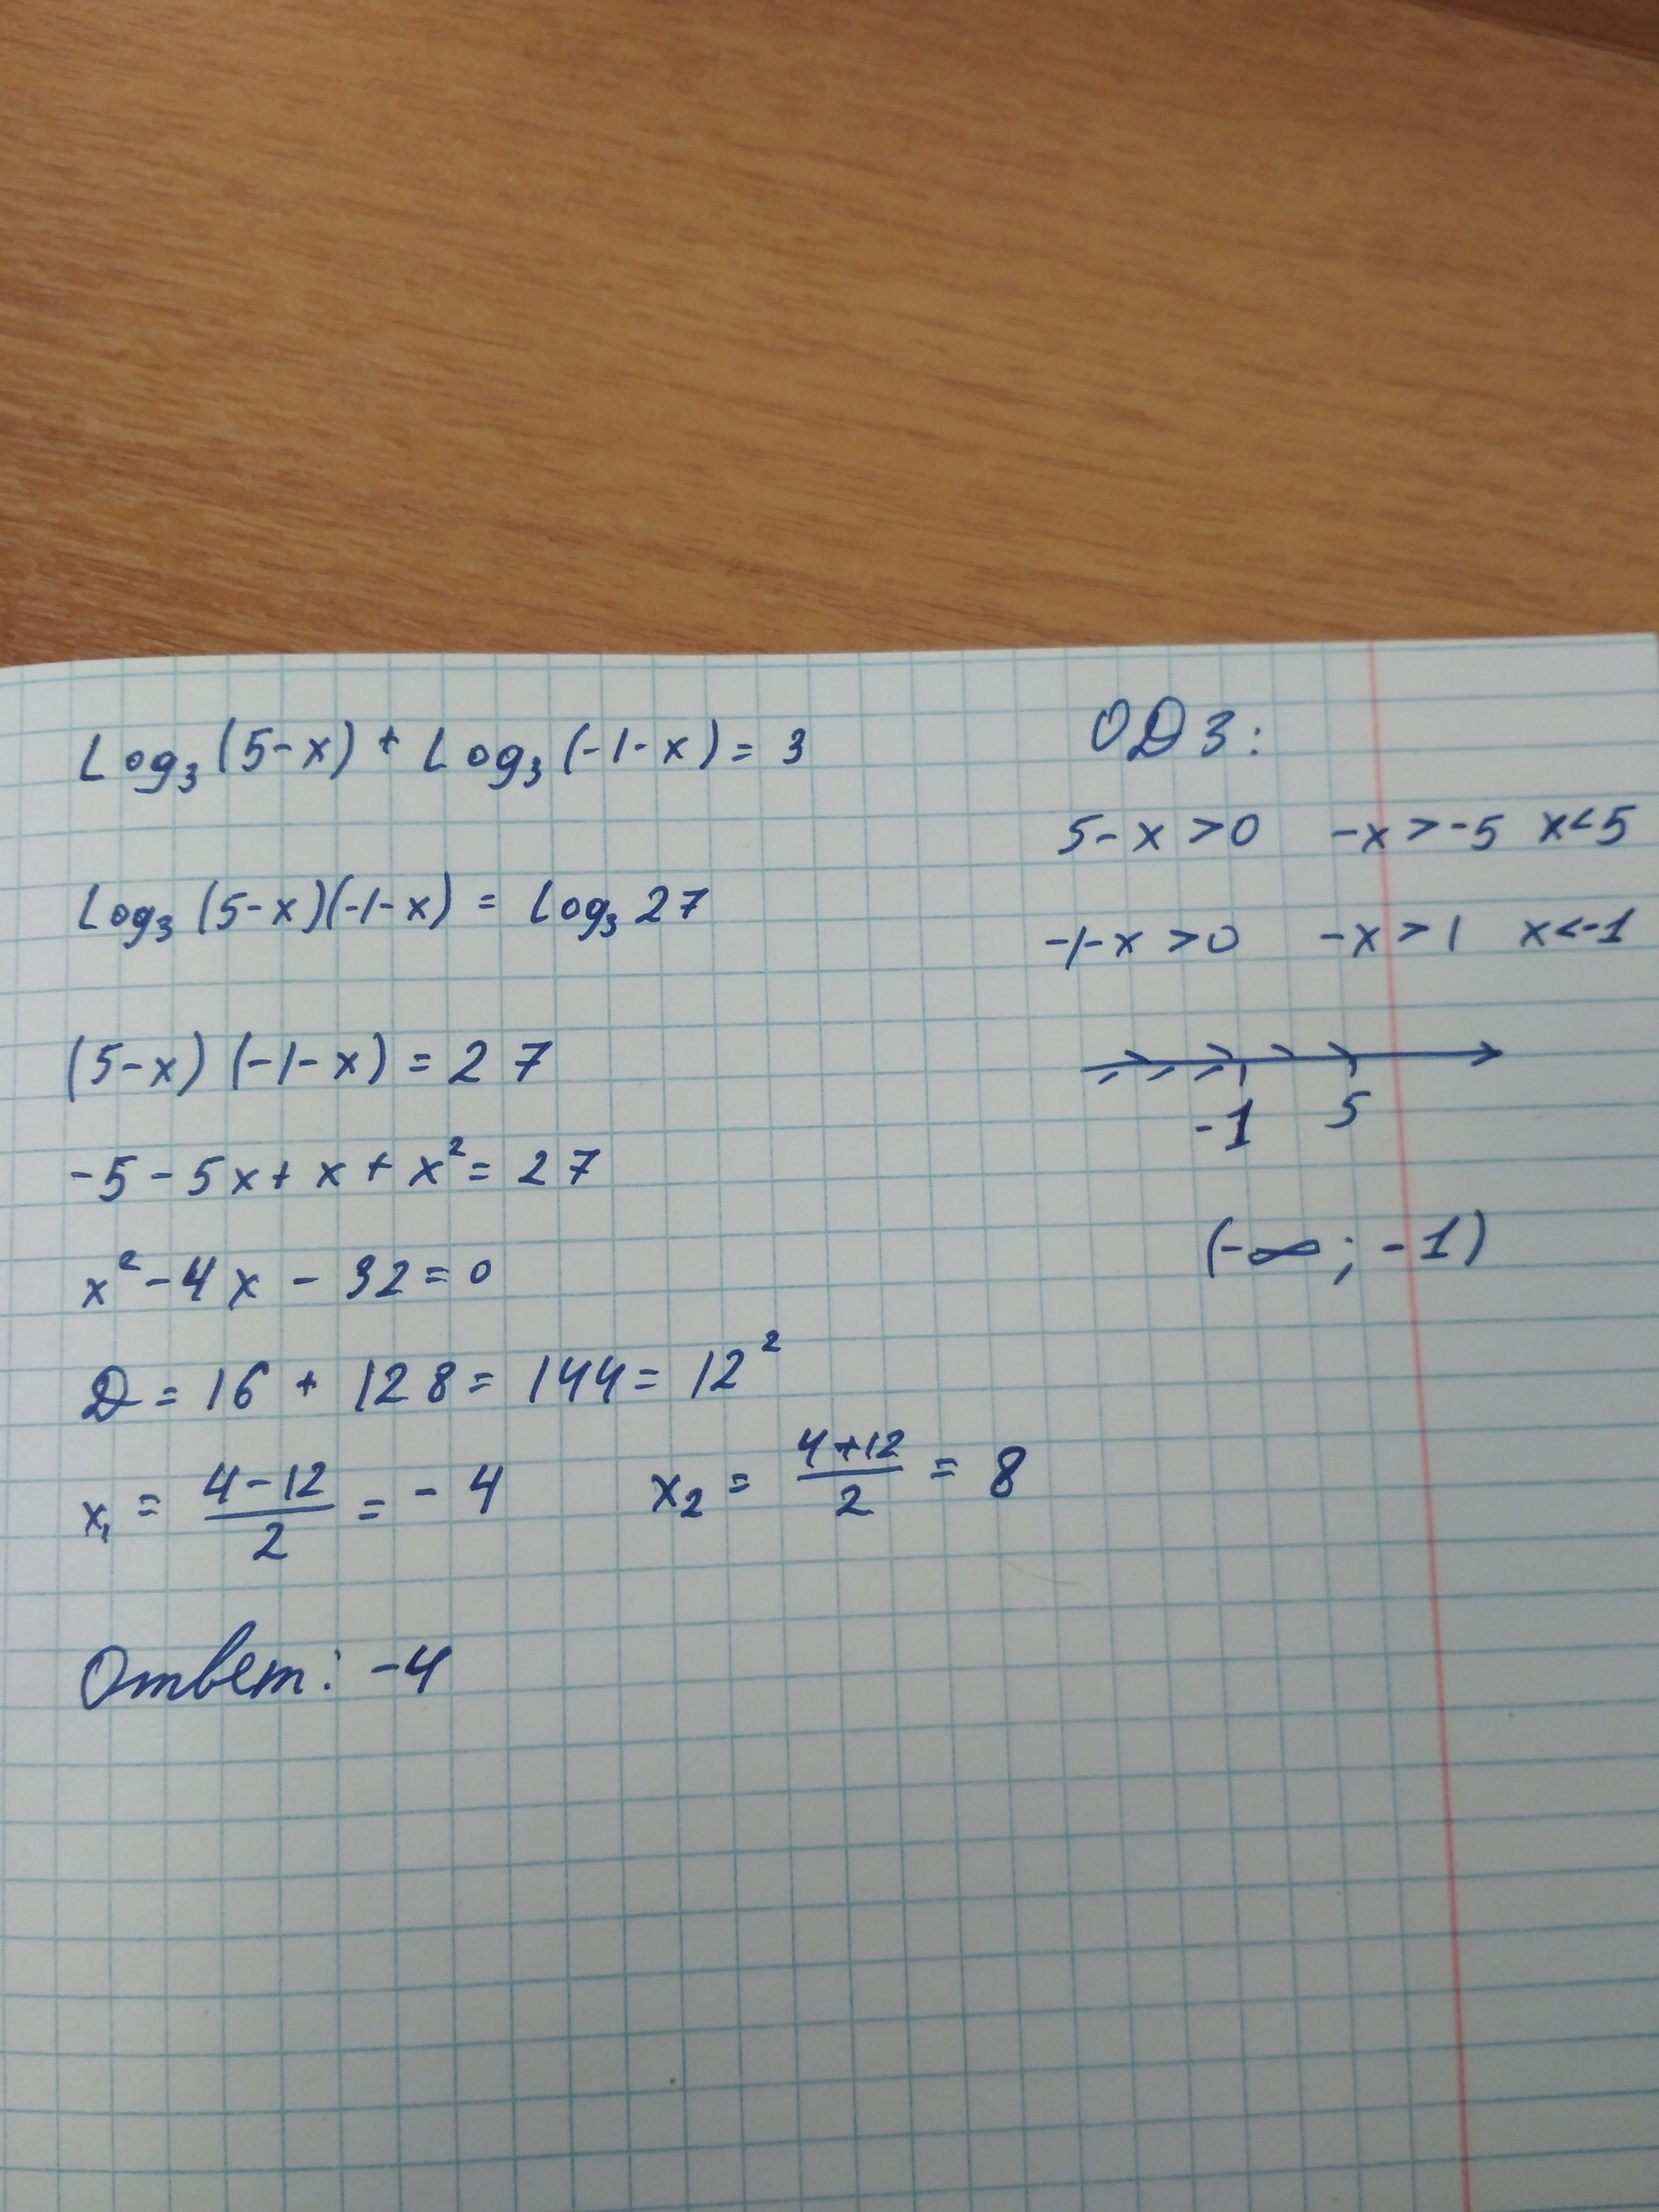 Log₃(5-x) + Log₃(-1-x) = 3
Log₃(5-x)(-1-x) = Log₃27
(5-x)(-1-x) = 27
-5-5x+x+x² = 27
x²-4x-32=0
D = 16 + 128 = 144 = 12²
x₁ = (4-12)/2 = -4    x₂ = (4+12)/2 = 8
Ответ: -4
ОДЗ:
5-x>0    -x>-5  x<5
-1-x>0    -x>1  x<-1
-1    5
(-∞; -1)